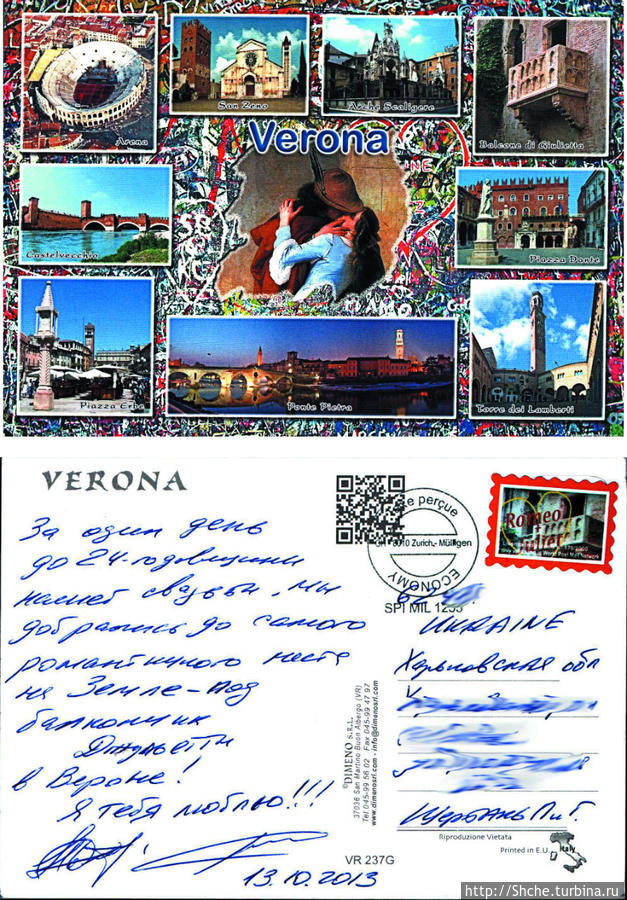 Arena
San Zeno
Arche Scaligere
Balcone di Giulietta
Verona
Castelvecchio
Piazza Dante
Piazza Erbe
Ponte Pietra
Torre dei Lamberti
VERONA
За один день
до 24-годовщини
нашей свадьбы, мы
добрались до самого
романтичного места
на Земле-под
балкончик
Джульетти
в Вероне!
Я тебя люблю!!!
13.10.2013
e perçue
8010 Zurich-Mülligen
ECONOMY
SPI MIL 1233
Romeo
Juliet
UKRAINE
Харьковская обл
Щербань П.Г.
©DIMENO S.R.L.
37036 San Martino Buon Albergo (VR)
Tel 045-99 56 02 Fax 045-99 47 97
www.dimenosrl.com - info@dimenosrl.com
Riproduzione Vietata
Printed in E.U.
Italy
VR 237G
http://Shche.turbina.ru